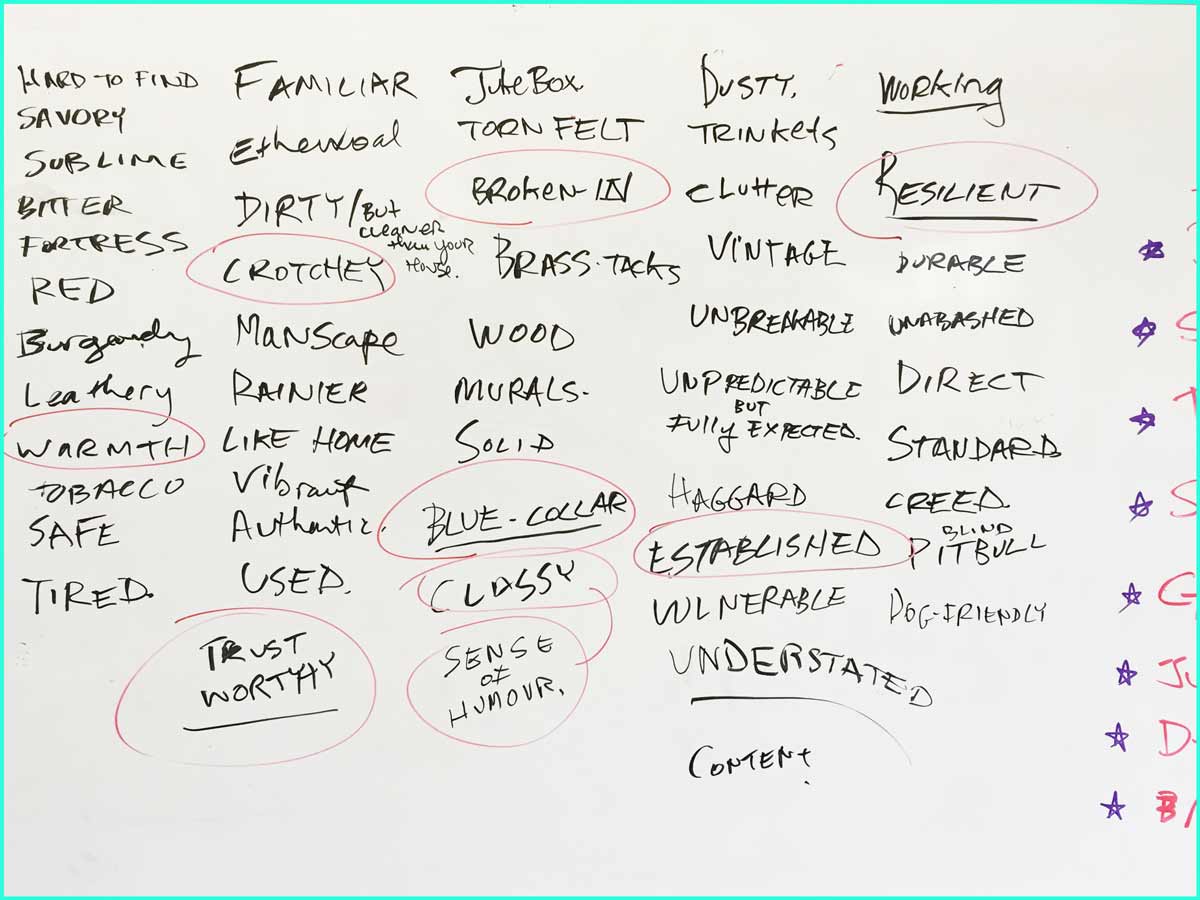 HARD TO FIND
SAVORY
SUBLIME
BITTER
FORTRESS
RED
Burgandy
Leathery
WARMTH
TOBACCO
SAFE
TIRED.
FAMILIAR
DIRTY/BUT
cleaner
than your
House.
CROTCHEY
MANScape
RAINIER
LIKE HOME
Vibrant
Authentic.
USED.
TRUST
WORTHY
JukeBox
TORN FELT
BROKEN-IN
BRASS-TACKS
WOOD
MURALS.
SOLID
BLUE-COLLAR
CLASSY
SENSE
of
HUMOUR.
DUSTY.
TRINKETS
CLUTTER
VINTAGE
UNBREAKABLE
UNPREDICTABLE
BUT
Fully EXPECTED.
HAGGARD
ESTABLISHED
VULNERABLE
UNDERSTATED
CONTENT
WORKING
RESILIENT
DURABLE
UNABASHED
DIRECT
STANDARD
CREED.
BLIND
PITBULL
DOG-FRIENDLY
S
T
S
G
Ju
D
B